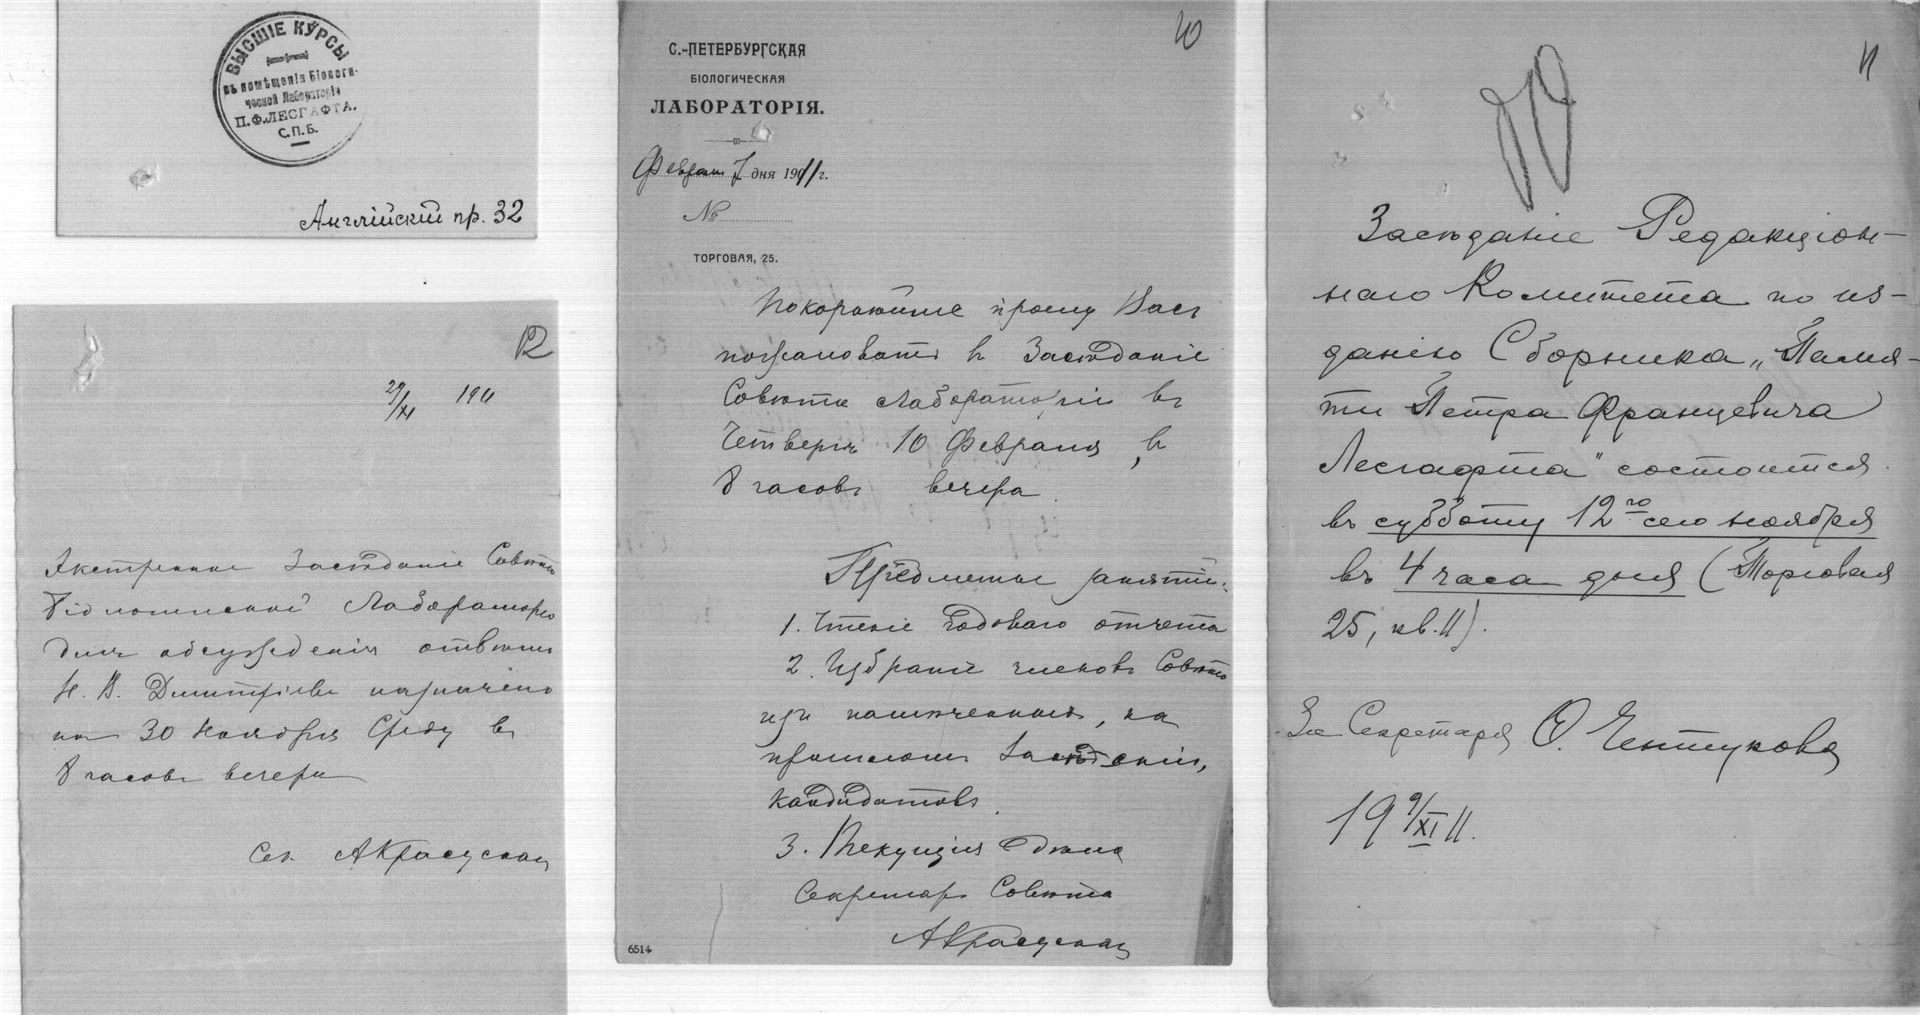 ВЫСШІЕ КУРСЫ
въ помѣщеніи Біологи-
ческой Лабораторіи
П.Ф.ЛЕСГАФТА.
С.П.Б.
Англійскій пр. 32
12
29/XI 1911
Экстренное Засѣданіе Совѣта
Біологической Лабораторіи
для обсужденія отвѣта
Н. В. Дмитріеву назначено
на 30 Ноября Среду въ
8 часовъ вечера
Сек. АКрасуская
10
С.-ПЕТЕРБУРГСКАЯ
БІОЛОГИЧЕСКАЯ
ЛАБОРАТОРІЯ.
Февраля 7 дня 1911 г.
№
ТОРГОВАЯ, 25.
Покорнѣйше прошу Васъ
пожаловать въ Засѣданіе
Совѣта Лабораторіи въ
Четвергъ 10 Февраля, въ
8 часовъ вечера.
Предметы занятій:
1. Чтеніе Годоваго отчета
2. Избраніе членовъ Совѣта
изъ намѣченныхъ, на
прошломъ Засѣданіи,
кандидатовъ.
3. Текущія дѣла
Секретарь Совѣта
АКрасуская
6514
11
Засѣданіе Редакціон-
наго Комитета по из-
данію Сборника „Памя-
ти Петра Францевича
Лесгафта" состоится
въ субботу 12го сего ноября
въ 4 часа дня (Торговая
25, кв. 11).
За Секретаря О. Чентукова
19 9/XI 11.